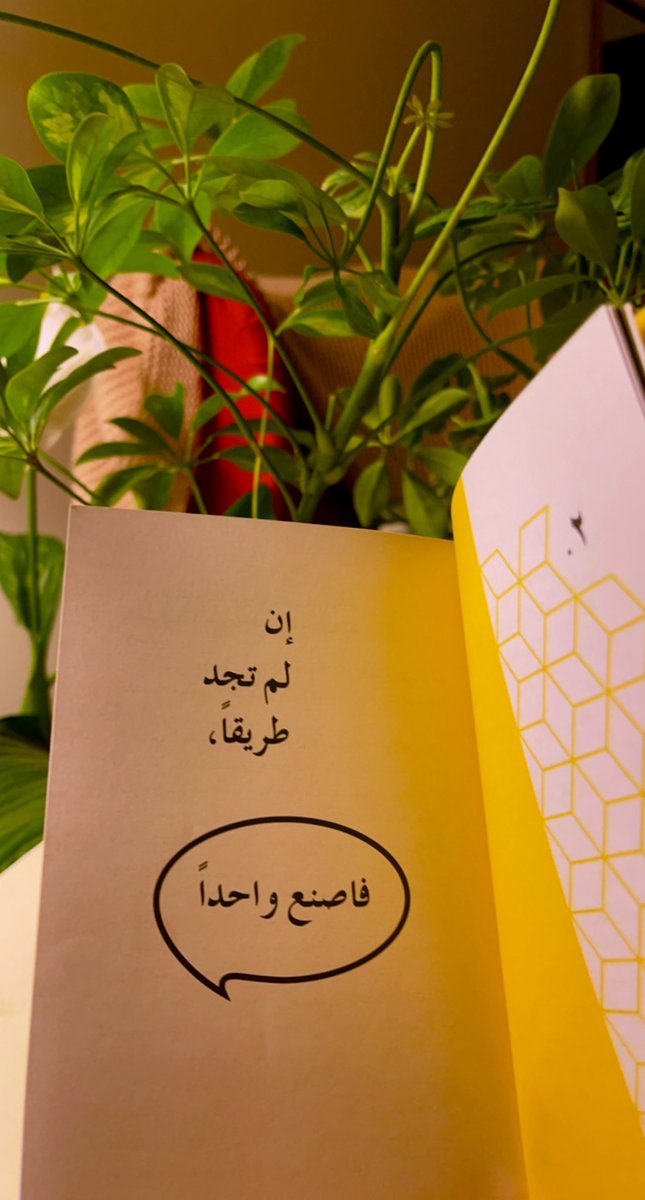 إن
لم تجد
طريقاً،
فاصنع واحداً